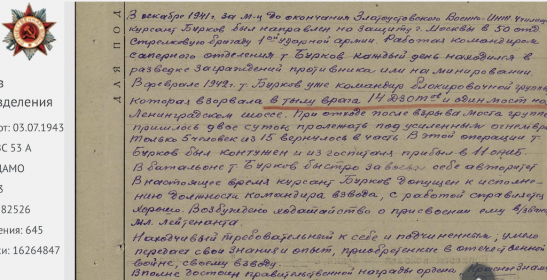 в
зделения
от: 03.07.1943
ВС 53 А
ДАМО
3
82526
ения: 645
си: 16264847
ДЛЯ ПОД
В декабре 1941г. за м-ц до окончания Златоустовского Военно-Инж. училища
курсант Бурков был направлен на защиту г. Москвы в 50 отд.
Стрелковую бригаду 1ой ударной армии. Работая командиром
саперного отделения т. Бурков каждый день находился в
разведке заграждений противника или на минировании
В феврале 1942г. т. Бурков уже командир блокировочной группы
которая взорвала в тылу врага 14 ДЗОТов и один мост на
Ленинградском шоссе. При отходе после взрыва моста группе
пришлось двое суток пролежать под жиленным огнем врага
только 5 человек из 15 вернулось в часть. В этой операции т.
Бурков был контужен и из госпиталя прибыл в 11 опиб.
В батальоне т. Бурков быстро завоевал себе авторитет
В настоящее время курсант Бурков допущен к исполне-
нию должности командира взвода, с работой справляется
хорошо. Возбуждено ходатайство о присвоении ему звания
мл. лейтенанта.
Находчивый требовательный к себе и подчиненным, умело
передает свои знания и опыт, приобретенные в отечественной
войне, своему взводу.
Вполне достоин правительственной награды ордена